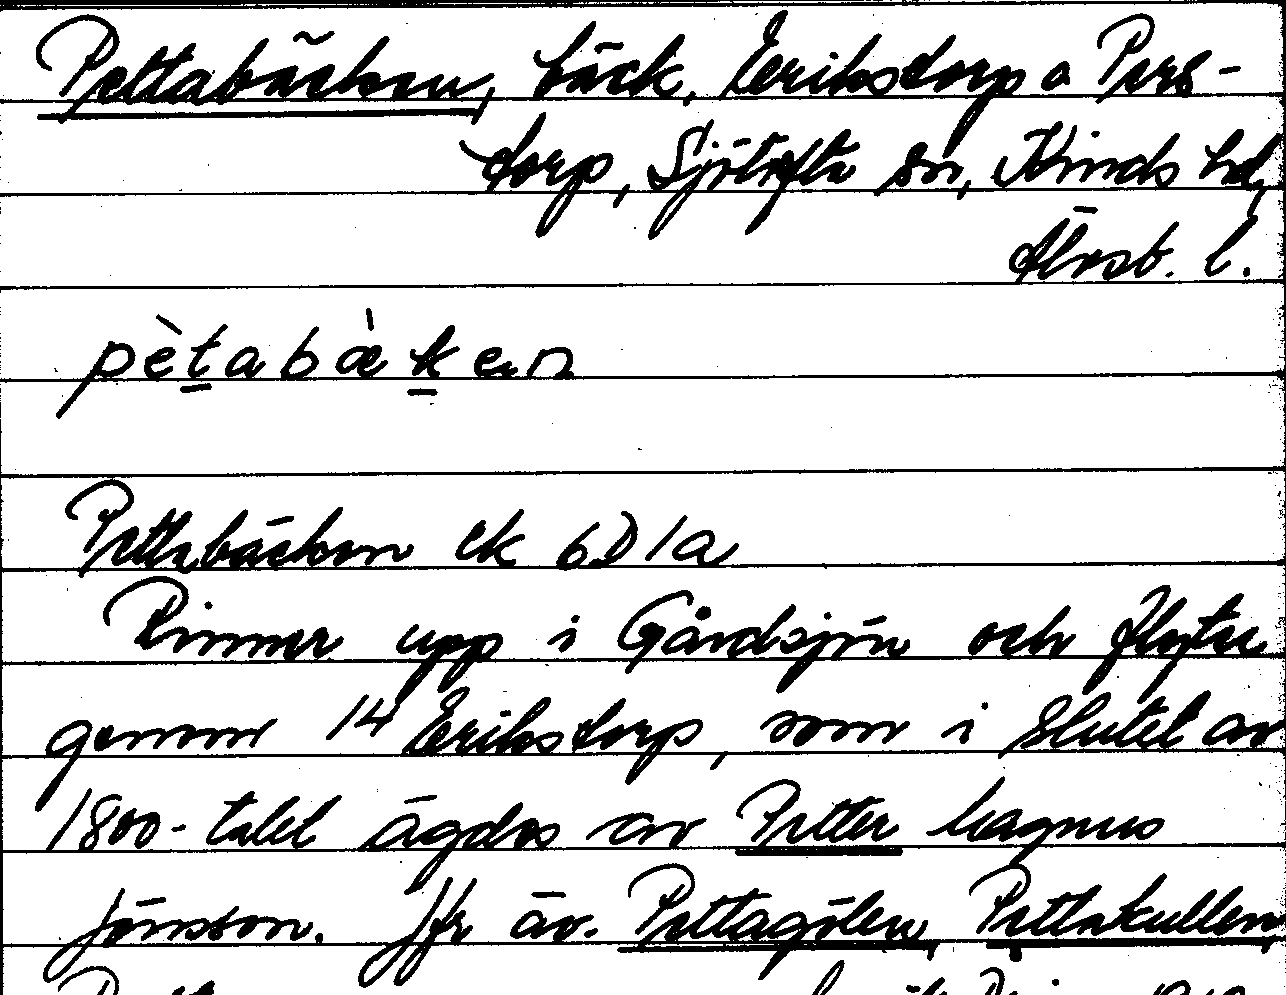 Pettabäcken, bäck, Erikstorp o Pers-
torp, Sjötofta sn, Kinds hd,
Älvsb. l.
pètabæ̀ken
Pettabäcken ek 6D1a
Rinner upp i Gårdsjön och flyter
genom 14 Erikstorp, som i slutet av
1800-talet ägdes av Petter Magnus
Jönsson. Jfr äv. Pettagölen, Pettakullen,